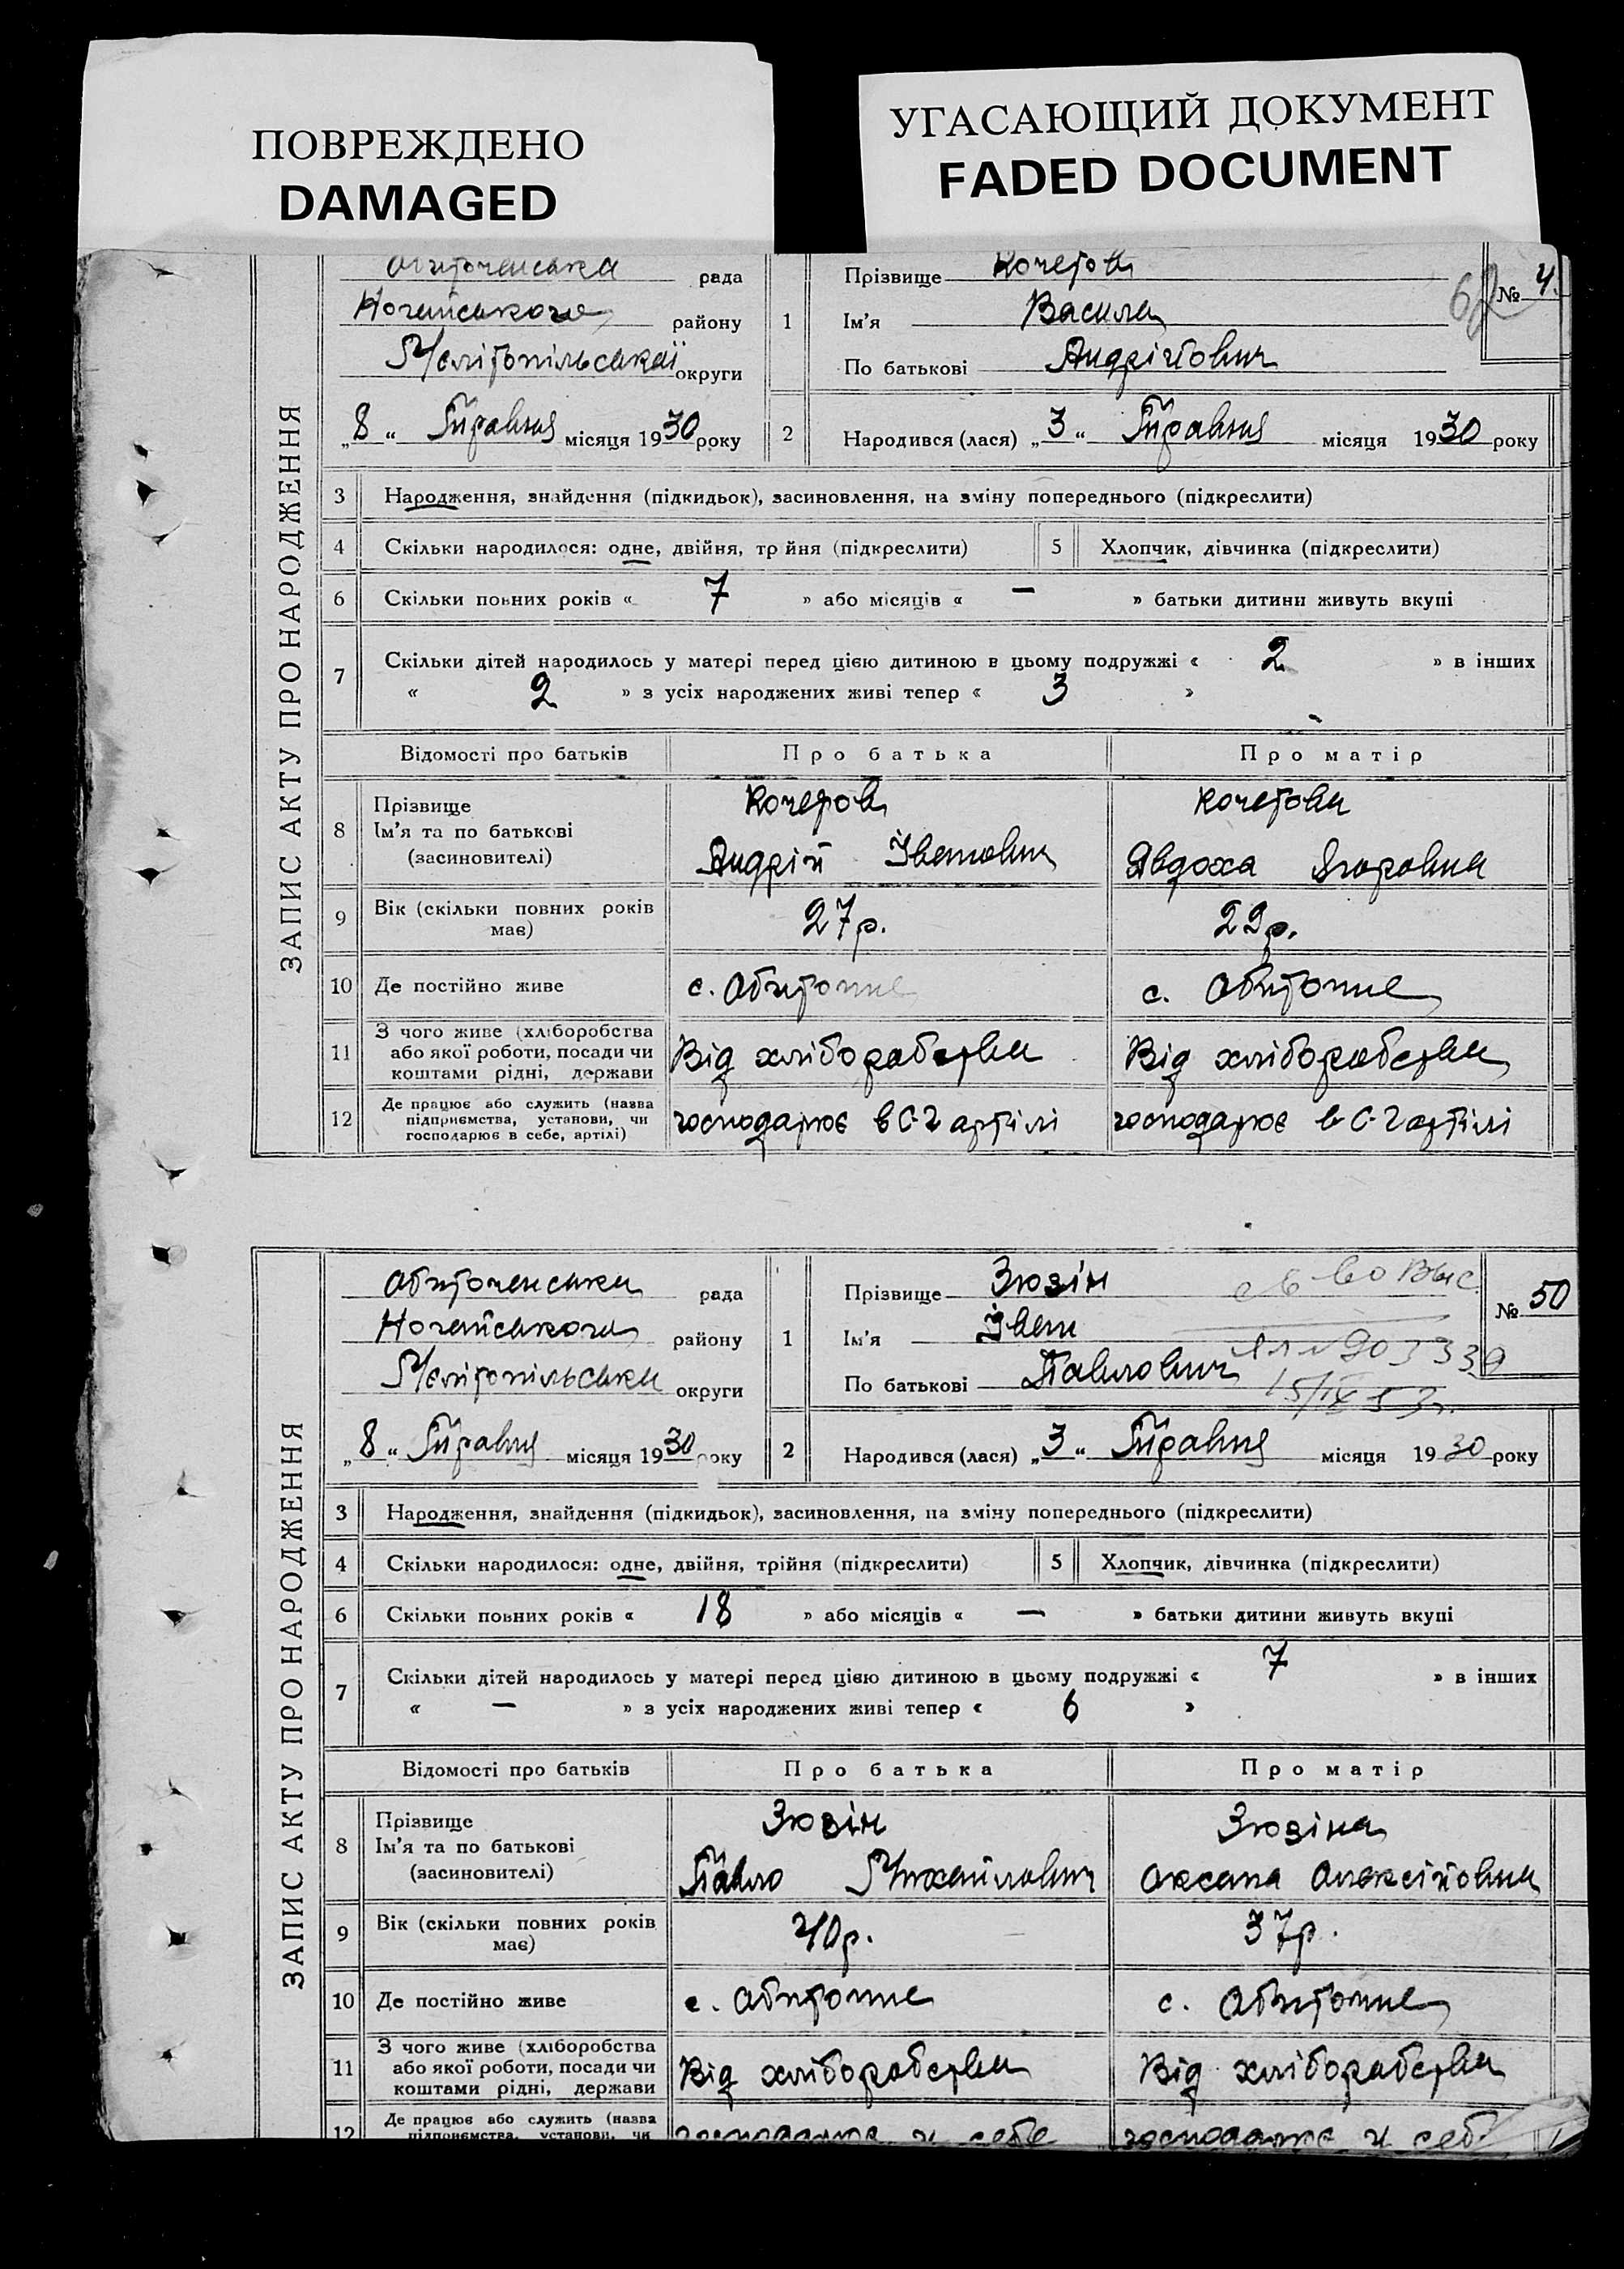 ПОВРЕЖДЕНО
DAMAGED
УГАСАЮЩИЙ ДОКУМЕНТ
FADED DOCUMENT
ЗАПИС АКТУ ПРО НАРОДЖЕННЯ
Обиточенська рада
Ногайського району
Мелітопільської округи
„8“ Травня місяця 1930 року
1 Прізвище Кочетов
Ім'я Василь
По батькові Андрійович
№ 4
2 Народився (лася) „3“ Травня місяця 1930 року
3 Народження, знайдення (підкидьок), засиновлення, на зміну попереднього (підкреслити)
4 Скільки народилося: одне, двійня, трійня (підкреслити) 5 Хлопчик, дівчинка (підкреслити)
6 Скільки повних років « 7 » або місяців « — » батьки дитини живуть вкупі
7 Скільки дітей народилось у матері перед цією дитиною в цьому подружжі « 2 » в інших
« 2 » з усіх народжених живі тепер « 3 »
Відомості про батьків Про батька Про матір
8 Прізвище Кочетов Кочетова
Ім'я та по батькові
(засиновителі) Андрій Іванович Явдоха Ягоровна
9 Вік (скільки повних років має) 27р. 29р.
10 Де постійно живе с. Обиточне с. Обиточне
11 З чого живе (хліборобства
або якої роботи, посади чи Від хліборобства Від хліборобства
коштами рідні, держави
12 Де працює або служить (назва
підприємства, установи, чи господарює в С-Г артілі господарює в С-Г артілі
господарює в себе, артілі)
ЗАПИС АКТУ ПРО НАРОДЖЕННЯ
Обиточенська рада
Ногайського району
Мелітопільська округи
„8“ Травня місяця 1930 року
1 Прізвище Зюзін
Ім'я Іван
По батькові Павлович
№ 50
15/IX 53г.
2 Народився (лася) „3“ Травня місяця 1930 року
3 Народження, знайдення (підкидьок), засиновлення, на зміну попереднього (підкреслити)
4 Скільки народилося: одне, двійня, трійня (підкреслити) 5 Хлопчик, дівчинка (підкреслити)
6 Скільки повних років « 18 » або місяців « — » батьки дитини живуть вкупі
7 Скільки дітей народилось у матері перед цією дитиною в цьому подружжі « 7 » в інших
« — » з усіх народжених живі тепер « 6 »
Відомості про батьків Про батька Про матір
8 Прізвище Зюзін Зюзіна
Ім'я та по батькові
(засиновителі) Павло Михайлович Оксана Олексійовна
9 Вік (скільки повних років має) 40р. 37р.
10 Де постійно живе с. Обиточне с. Обиточне
11 З чого живе (хліборобства
або якої роботи, посади чи Від хліборобства Від хліборобства
коштами рідні, держави
12 Де працює або служить (назва
підприємства, установи, чи господарює у себе господарює у себе